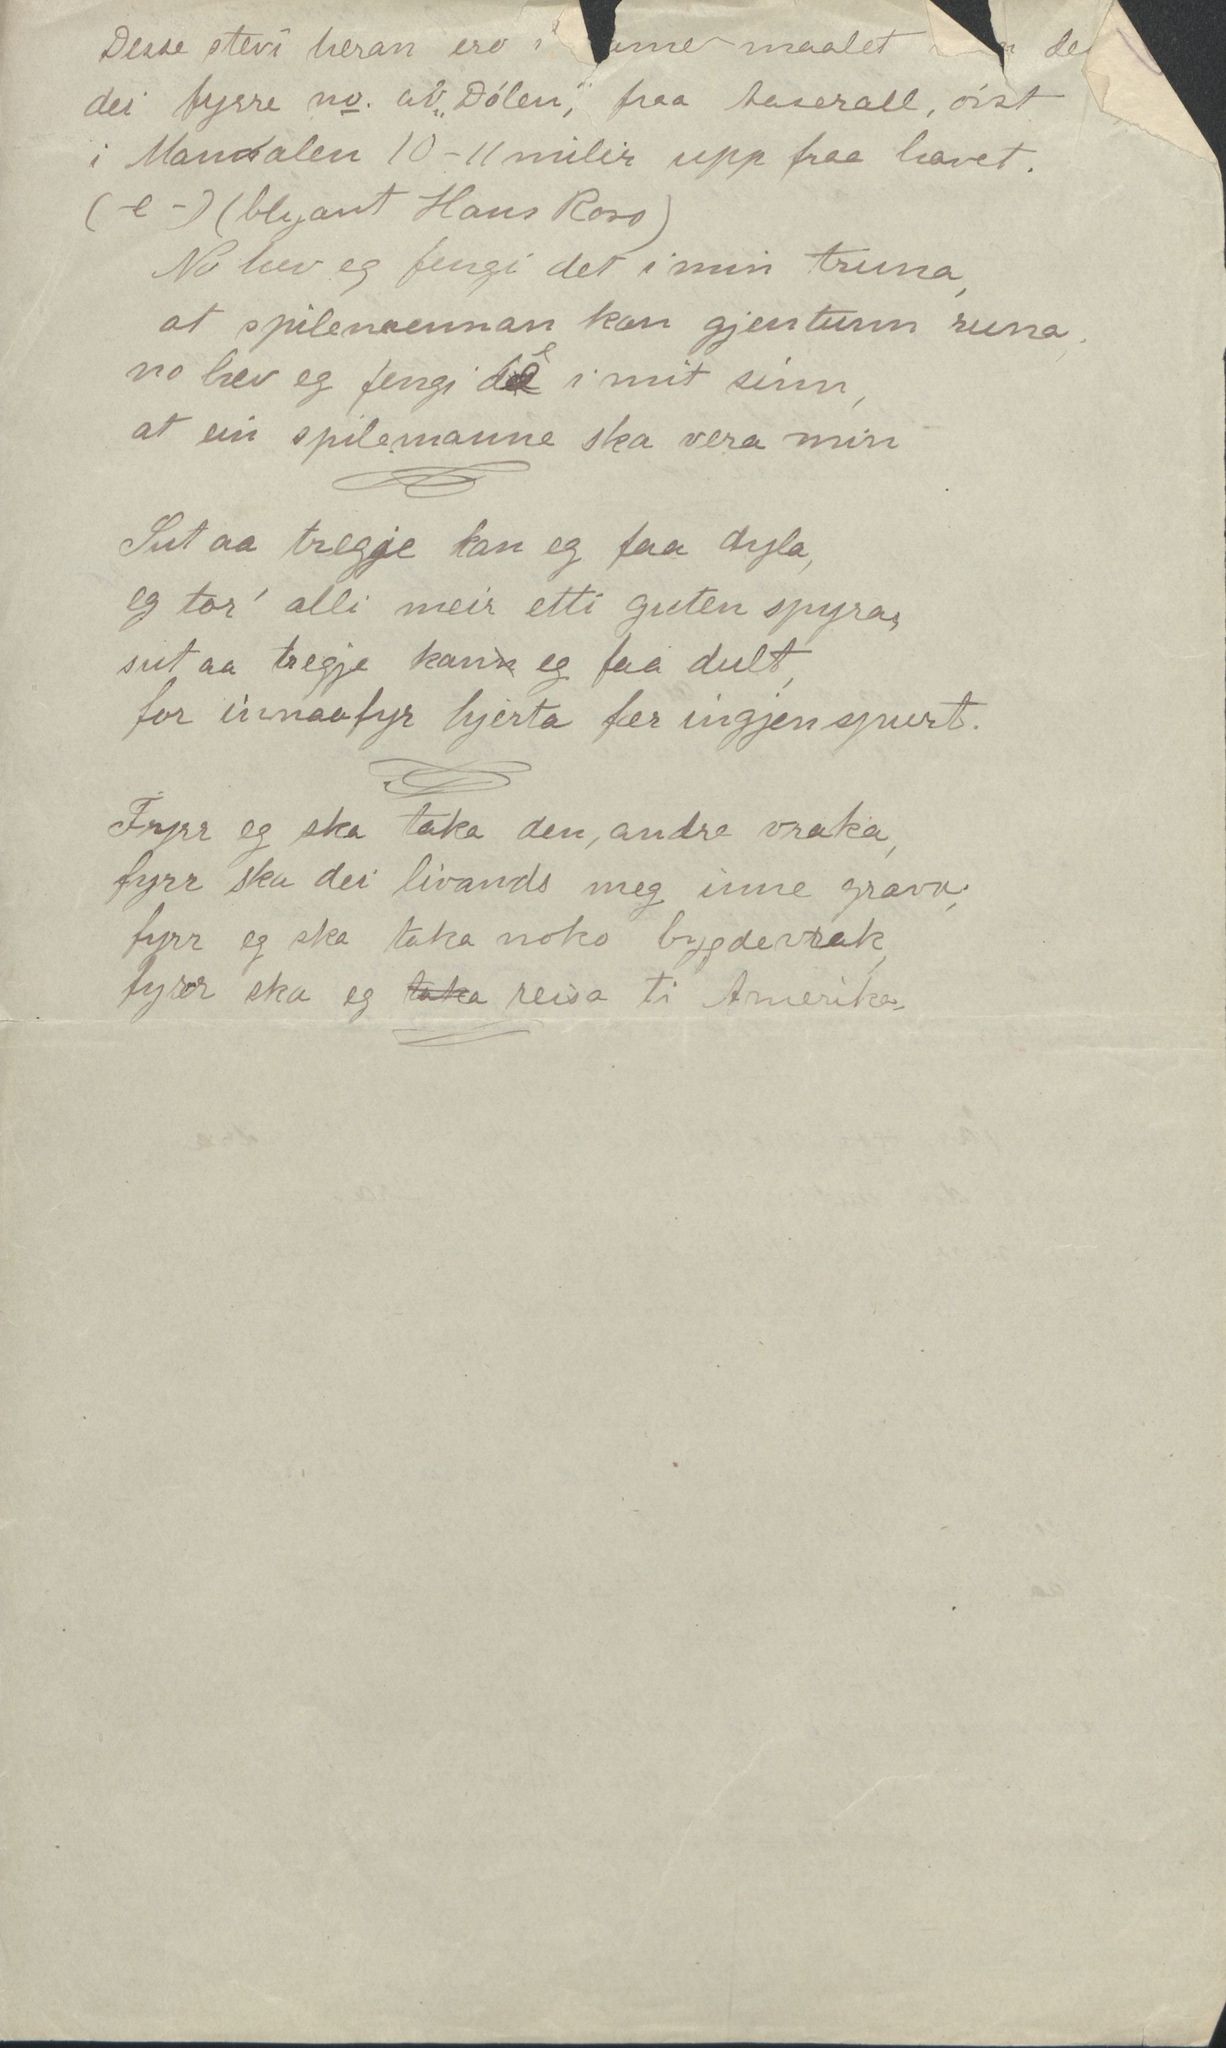 Desse stevi heran ero i same maalet de
dei fyrre no. av "Dólen", fraa Aaserall, óist
i Mandalen 10-11 milir upp fraa havet.
(-e-) (blyant Hans Ross)
No hev eg fengi det i min truna,
at spilemannan kan gjentunn runa,
no hev eg fengi dê i mit sinn,
at ein spilemanne ska vera min
Sut aa tregje kan eg faa dyla,
eg tor' alli meir etti guten spyra,
sut aa tregje kann eg faa dult,
for innaafyr hjerta fær ingjen spurt.
Fyrr eg ska taka den, andre vraka,
fyrr ska dei livands meg inne grava;
fyrr eg ska taka noko bygdevrak,
fyrr ska eg taka reisa ti Amerika.